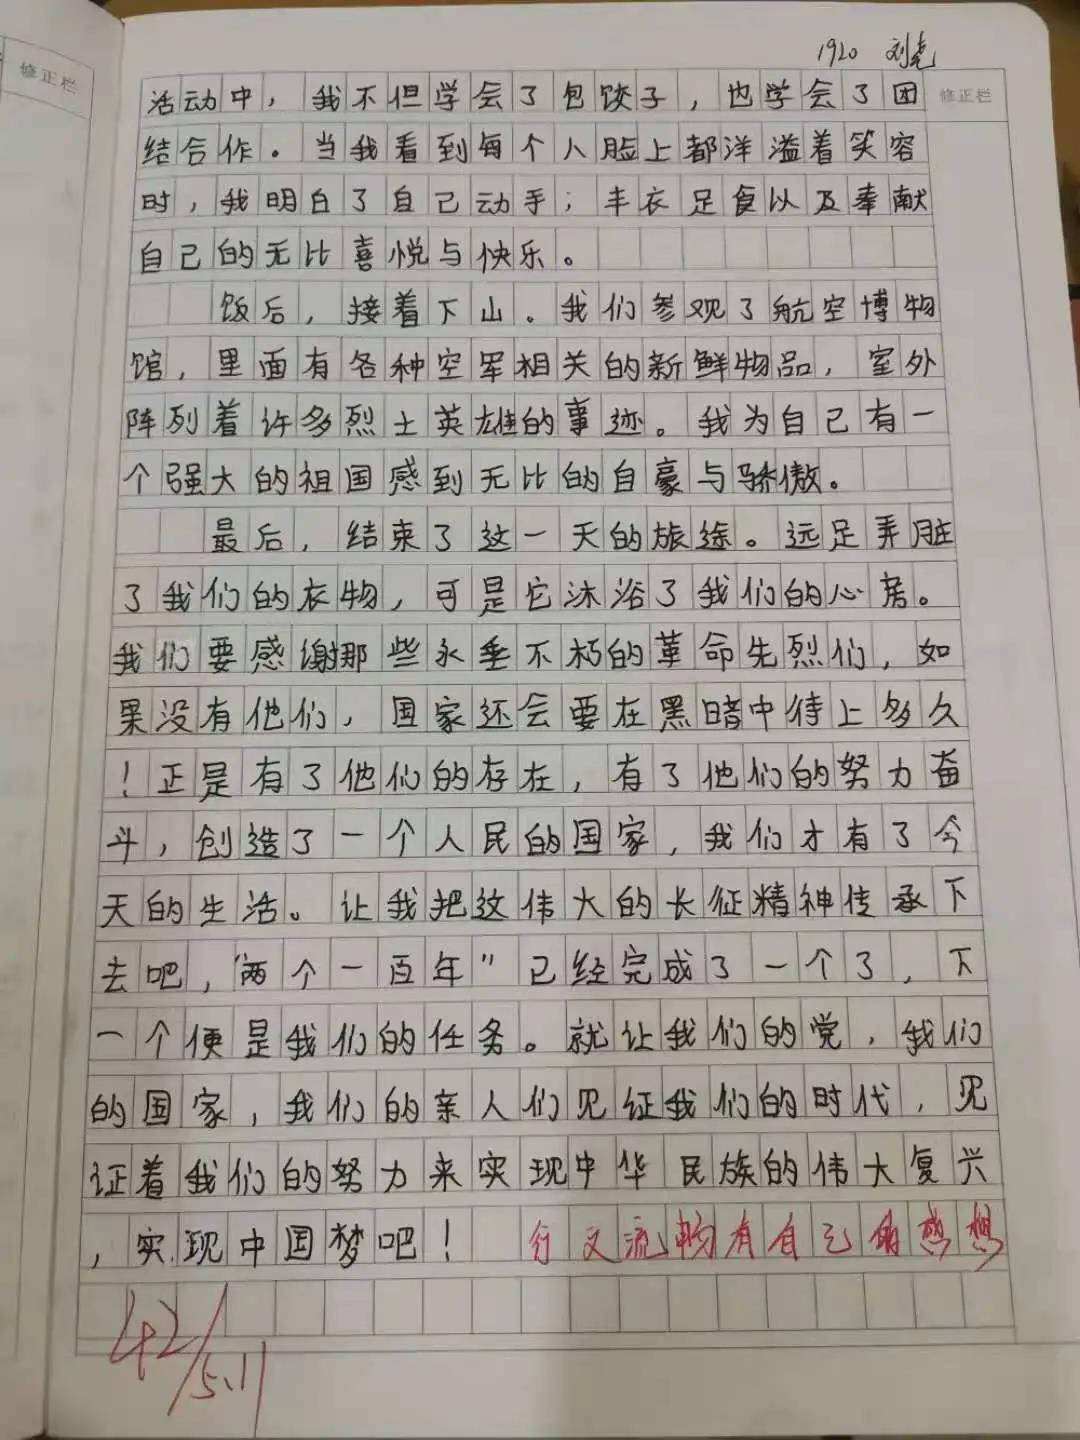 修正栏
1920 刘尧
修正栏
活动中，我不但学会了包饺子，也学会了团
结合作。当我看到每个人脸上都洋溢着笑容
时，我明白了自己动手；丰衣足食以及奉献
自己的无比喜悦与快乐。
饭后，接着下山。我们参观了航空博物
馆，里面有各种空军相关的新鲜物品，室外
阵列着许多烈士英雄的事迹。我为自己有一
个强大的祖国感到无比的自豪与骄傲。
最后，结束了这一天的旅途。远足弄脏
了我们的衣物，可是它沐浴了我们的心房。
我们要感谢那些永垂不朽的革命先烈们，如
果没有他们，国家还会要在黑暗中待上多久
！正是有了他们的存在，有了他们的努力奋
斗，创造了一个人民的国家，我们才有了今
天的生活。让我把这伟大的长征精神传承下
去吧，“两个一百年”已经完成了一个了，下
一个便是我们的任务。就让我们的党，我们
的国家，我们的亲人们见证我们的时代，见
证着我们的努力来实现中华民族的伟大复兴
，实现中国梦吧！ 行文流畅有自己的感想
42/5.11